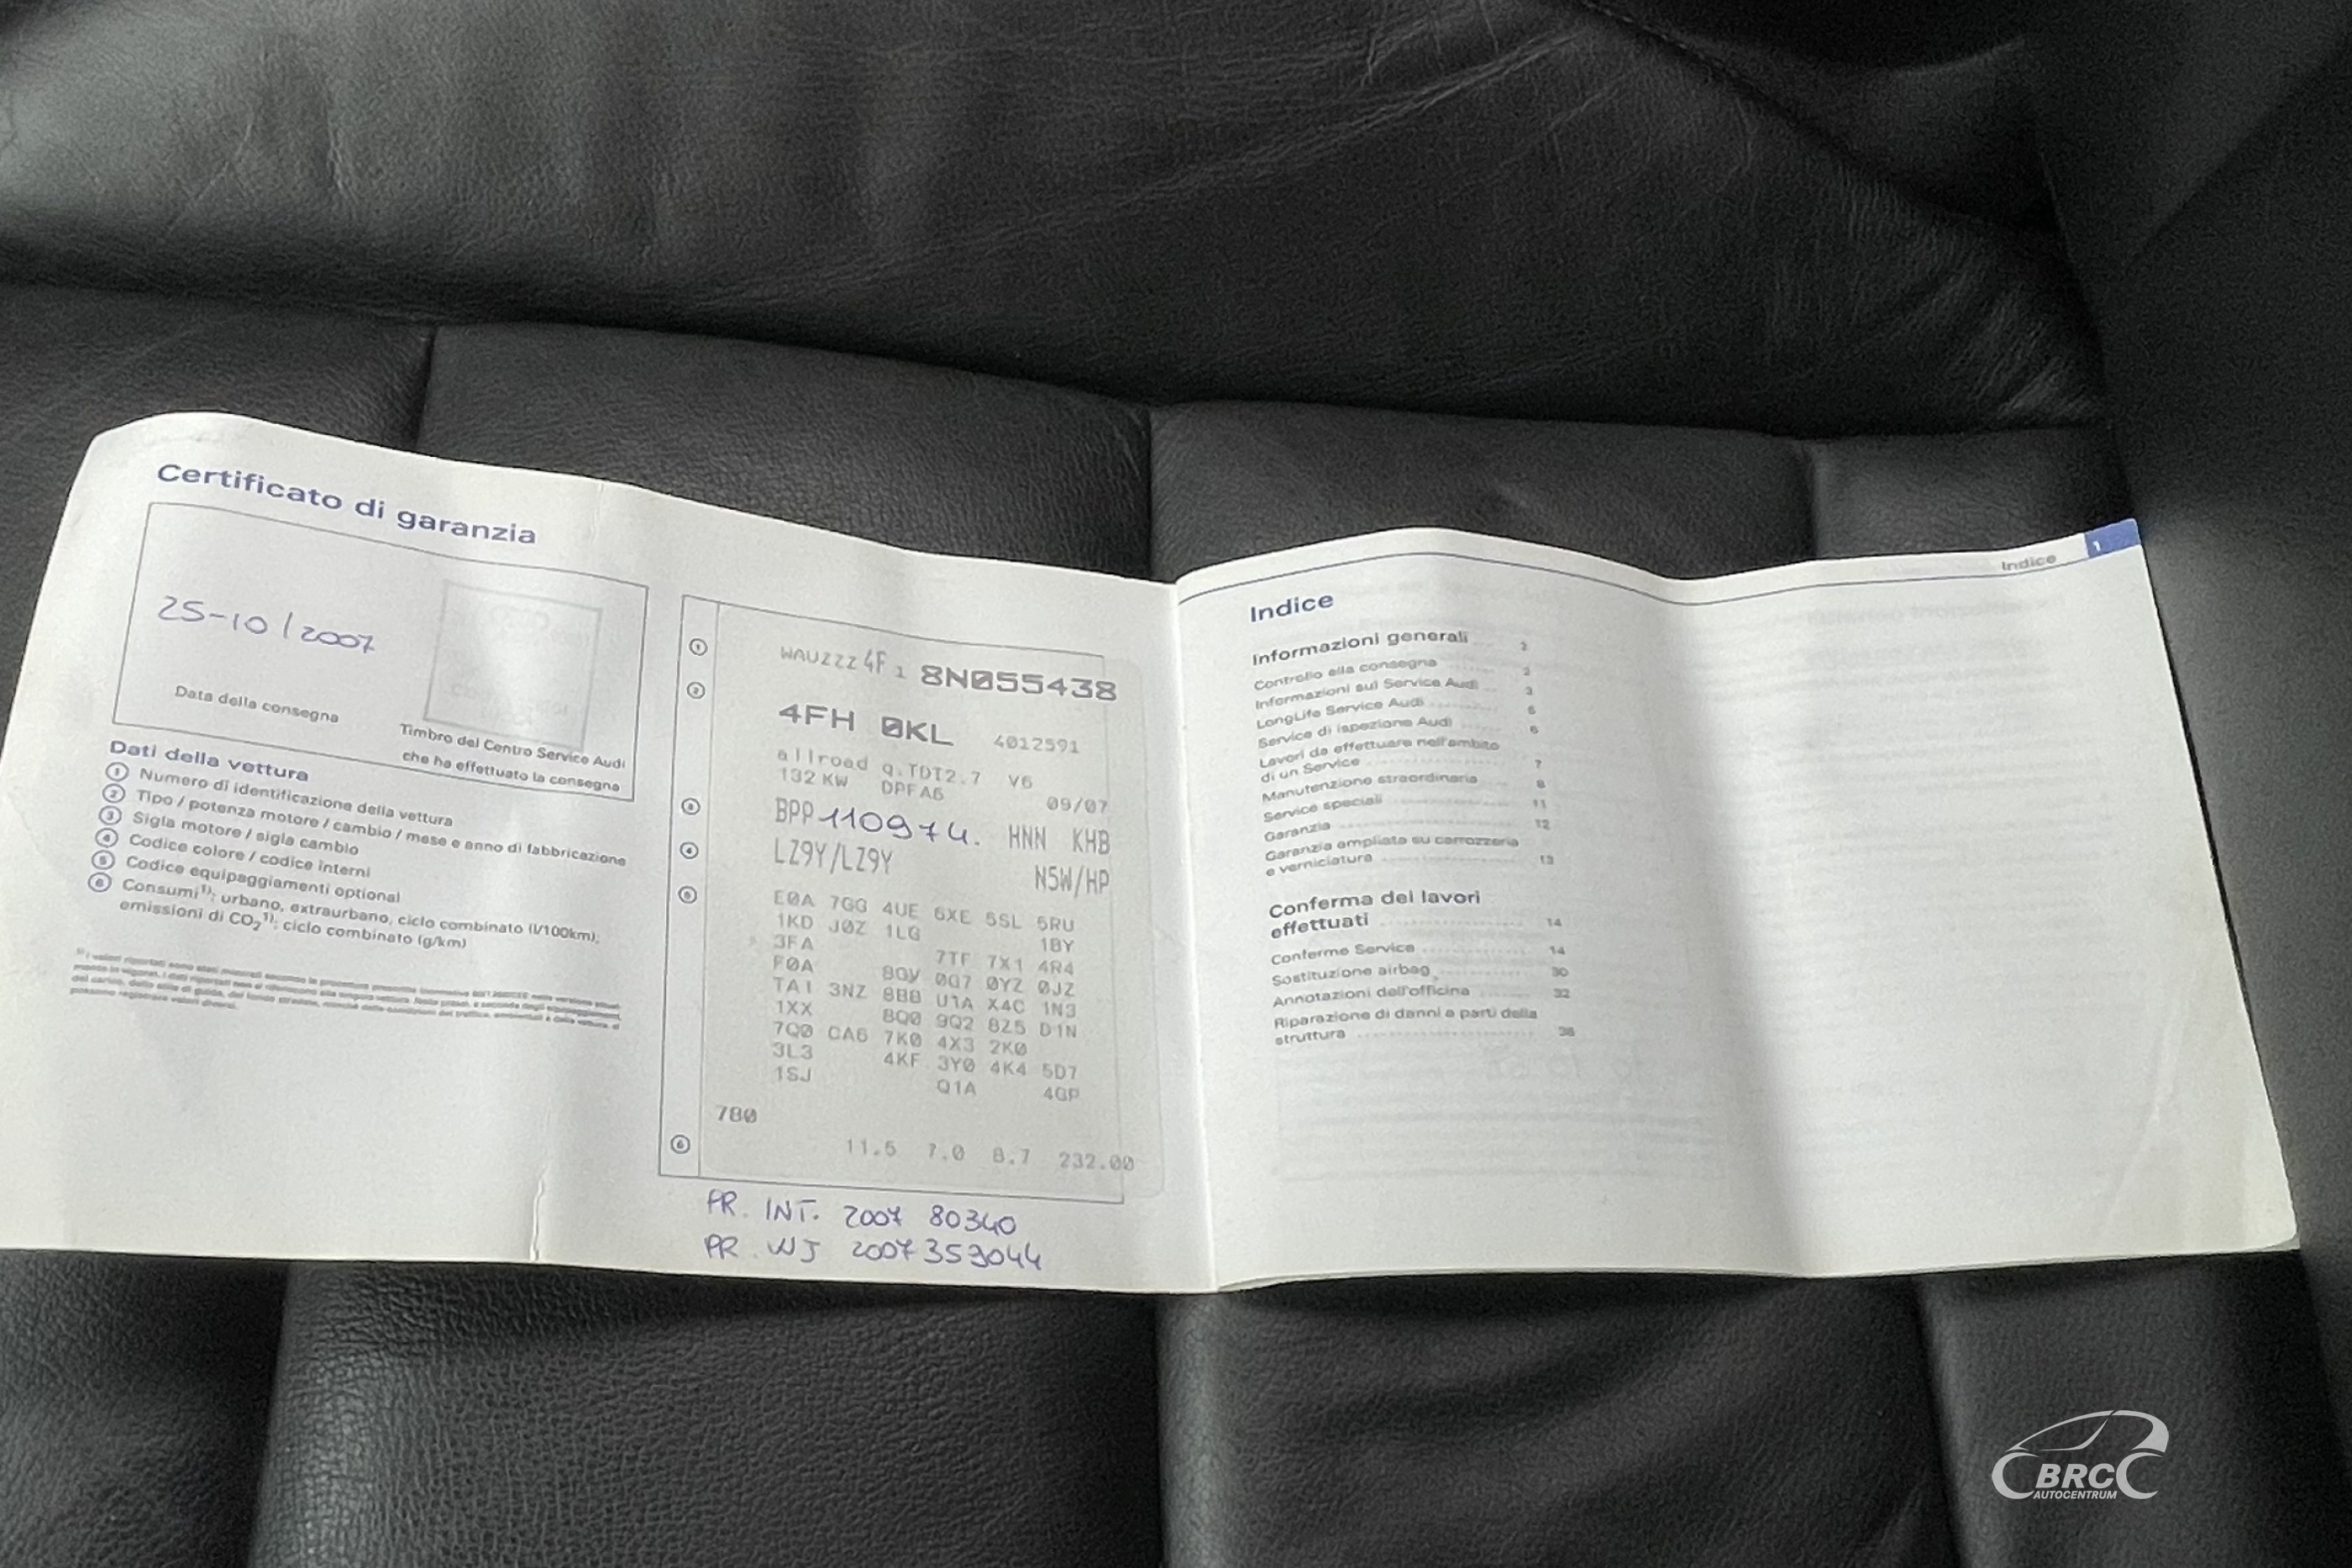 Certificato di garanzia
25-10/2007
Data della consegna
Timbro del Centro Service Audi
che ha effettuato la consegna
Dati della vettura
1 Numero di identificazione della vettura
2 Tipo / potenza motore / cambio / mese e anno di fabbricazione
3 Sigla motore / sigla cambio
4 Codice colore / codice interni
5 Codice equipaggiamenti optional
6 Consumi1): urbano, extraurbano, ciclo combinato (l/100km);
emissioni di CO2 1): ciclo combinato (g/km)
1 WAUZZZ4F1 8N055438
2 4FH 0KL 4012591
allroad q.TDI2.7 V6
132 KW DPFA6 09/07
3 BPP 110974. HNN KHB
4 LZ9Y/LZ9Y N5W/HP
5 E0A 7GG 4UE 6XE 5SL 5RU
1KD J0Z 1LG 1BY
3FA 7TF 7X1 4R4
F0A 8GV 0G7 0YZ 0JZ
TA1 3NZ 8BB U1A X4C 1N3
1XX 8Q0 9Q2 8Z5 D1N
7Q0 CA6 7K0 4X3 2K0
3L3 4KF 3Y0 4K4 5D7
1SJ Q1A 4GP
780
6 11.5 7.0 8.7 232.00
PR. INT. 2007 80340
PR. WJ 2007 359044
Indice 1
Indice
Informazioni generali 2
Controllo alla consegna 2
Informazioni sul Service Audi 3
LongLife Service Audi 5
Service di ispezione Audi 6
Lavori da effettuare nell'ambito
di un Service 7
Manutenzione straordinaria 8
Service speciali 11
Garanzia 12
Garanzia ampliata su carrozzeria
e verniciatura 13
Conferma dei lavori
effettuati 14
Conferme Service 14
Sostituzione airbag 30
Annotazioni dell'officina 32
Riparazione di danni a parti della
struttura 36
BRC
AUTOCENTRUM